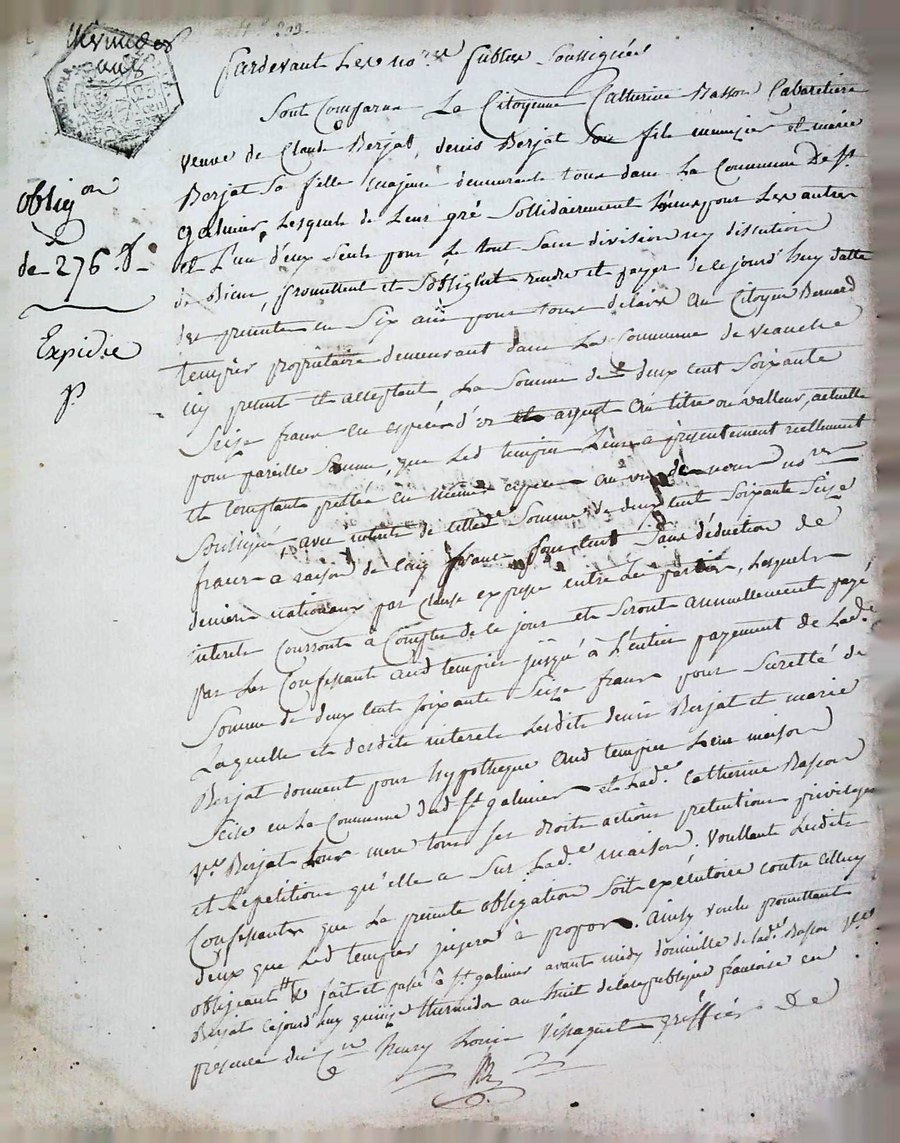 N.º 209.
Pardevant Les no.res Publics Soussignés
Sont Comparus La Citoyenne Catherine Basson Cabaretiere
veuve de Claude Berjat, denis Berjat Son fils menuzier et marie
Berjat Sa fille majeure demeurants tous dans La Commune De St
galmier, Lesquels de Leurs gré Sollidairement L'un pour Les autres
et L'un d'eux Seule pour Le tout Sans division ny discution
de Biens, promettent et S'obligent rendre et payer de ce jourd'huy datte
des presentes en Six ans pour tous delais Au Citoyen Bernard
tempier propriétaire demeurant dans La Commune de veauche
icy present et acceptant, La Somme de deux cent Soixante
Seize francs en especes d'or et argent Au titre ou valleur actuelle
pour pareille Somme, que Led tempier Leurs a présentement reellement
et Comptant prettée en mêmes especes Au vu de nous no.res
Soussignés avec interets de cette de Somme de deux cent Soixante Seize
francs a raison de Cinq francs pour Cent Sans déduction de
deniers nationaux par Clause expresse entre Les parties, Lesquels
interets Courront à Compter de ce jour et Seront annuellement payés
par Les Confessants Aud tempier jusqu'à L'entier payement de Lad.e
Somme de deux Cent Soixante Seize francs pour Suretté de
Laquelle et desdits interets Lesdits denis Berjat et marie
Berjat donnent pour hypotheque Aud tempier Leurs maison
Scize en La Commune dud St galmier et Lad.e Catherine Basson
v.e Berjat Leur mere tous Ses droits actions pretentions privileges
et Repetitions qu'elle a Sur Lad.e maison. Voullant Lesdits
Confessants que La presente obligation Soit exécutoire contre Celluy
deux que Led tempier jugera à propos. Ainsy voulu promettant
obligeant et fait et passé à St galmier avant midy domicille de Lad.e Basson v.e
Berjat Cejourd'huy quinze thermidor an huit de la republique françoise en
presence du C.en henry Louis Greffier de
obligon
de 276 #
Expidiée